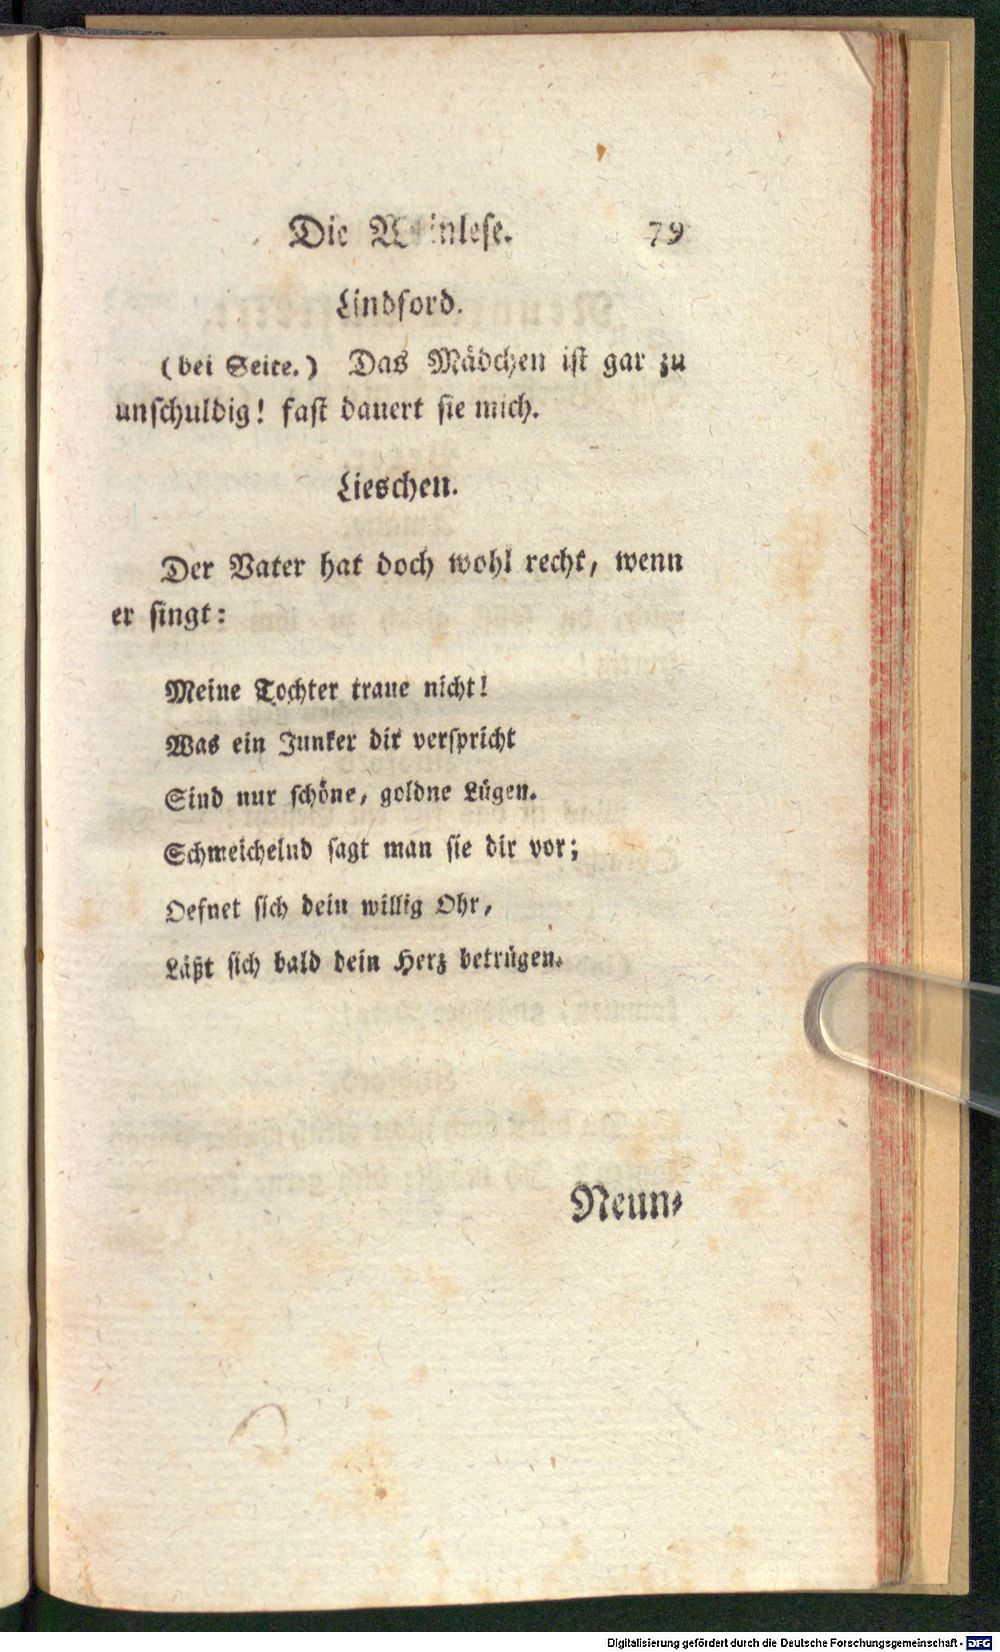 Die Weinlese. 79
Lindford.
(bei Seite.) Das Mädchen ist gar zu
unschuldig! fast dauert sie mich.
Lieschen.
Der Vater hat doch wohl recht, wenn
er singt:
Meine Tochter traue nicht!
Was ein Junker dir verspricht
Sind nur schöne, goldne Lügen.
Schmeichelnd sagt man sie dir vor;
Oefnet sich dein willig Ohr,
Läßt sich bald dein Herz betrügen.
Neun-
Digitalisierung gefördert durch die Deutsche Forschungsgemeinschaft - DFG